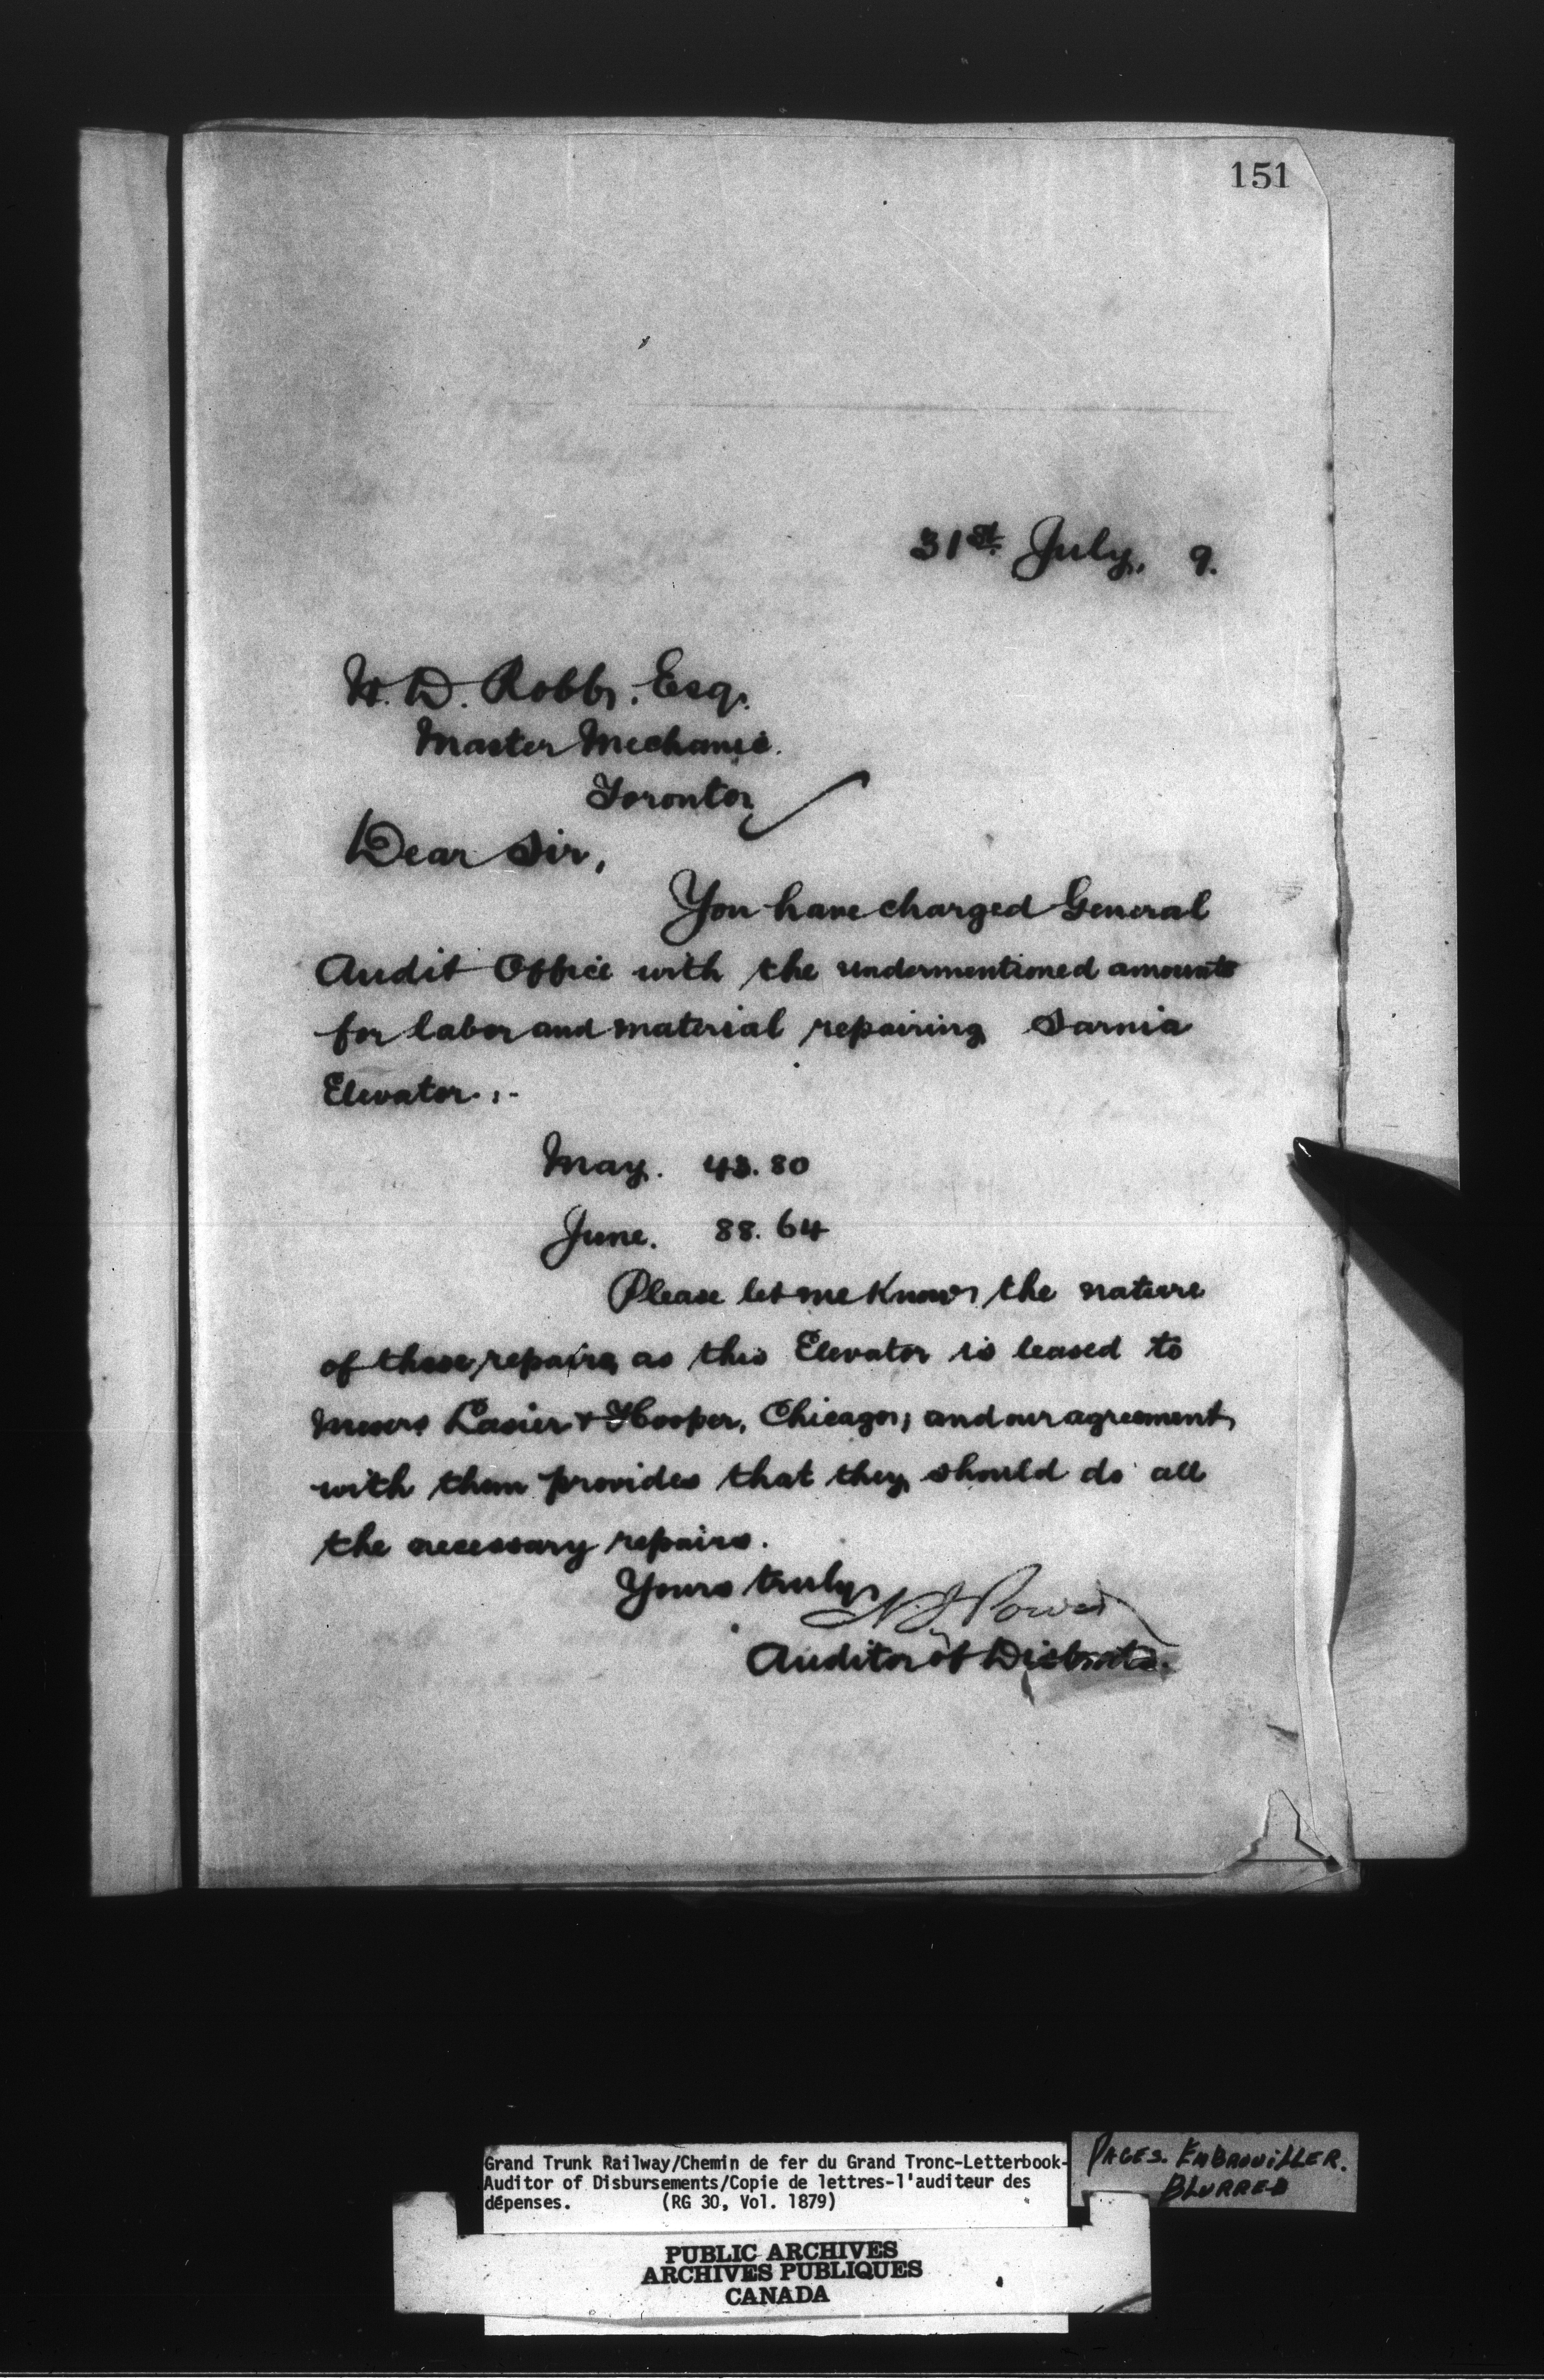 151
31st. July, 9.
W. D. Robb, Esq.
Master Mechanic.
Toronto,
Dear Sir,
You have charged General
Audit Office with the undermentioned amounts
for labor and material repairing Sarnia
Elevator :-
May. 43.80
June. 88.64
Please let me know the nature
of these repairs, as this Elevator is leased to
Messrs Lasier & Hooper, Chicago; and our agreement
with them provides that they should do all
the necessary repairs.
Yours truly,
Power
Auditor of Disbmts.
Grand Trunk Railway/Chemin de fer du Grand Tronc-Letterbook-
Auditor of Disbursements/Copie de lettres-l'auditeur des
dépenses. (RG 30, Vol. 1879)
PAGES. EMBROUILLER.
BLURRED
PUBLIC ARCHIVES
ARCHIVES PUBLIQUES
CANADA